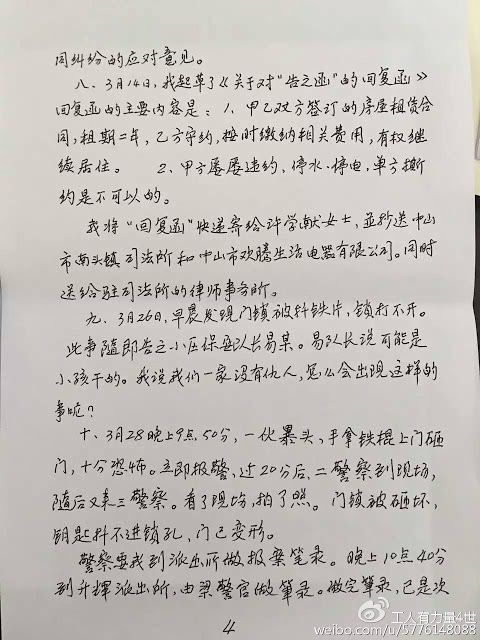 同纠纷的应对意见。
八、3月14日，我起草了《关于对“告之函”的回复函》
回复函的主要内容是：1、甲乙双方签订的房屋租赁合
同，租期二年，乙方守约，按时缴纳相关费用，有权继
续居住。 2、甲方屡屡违约、停水、停电，单方撕
约是不可以的。
我将“回复函”快递寄给许学献女士，并抄送中山
市南头镇司法所和中山市欢腾生活电器有限公司。同时
送给驻司法所的律师事务所。
九、3月26日，早晨发现门锁被抖铁片，锁打不开。
此事随即告之小区保安队长易某。易队长说可能是
小孩干的。我说我们一家没有仇人，怎么会出现这样的
事呢？
十、3月28晚上9点50分，一伙暴头，手拿铁棍上门砸
门，十分恐怖。立即报警，近20分后，二警察到现场，
随后又来三警察。看了现场，拍了照。门锁被砸坏，
钥匙抖不进锁孔，门已变形。
警察要我到派出所做报案笔录。晚上10点40分
到升辉派出所，由梁警官做笔录。做完笔录，已是次
4
工人有力量4世
weibo.com/u/5776148088